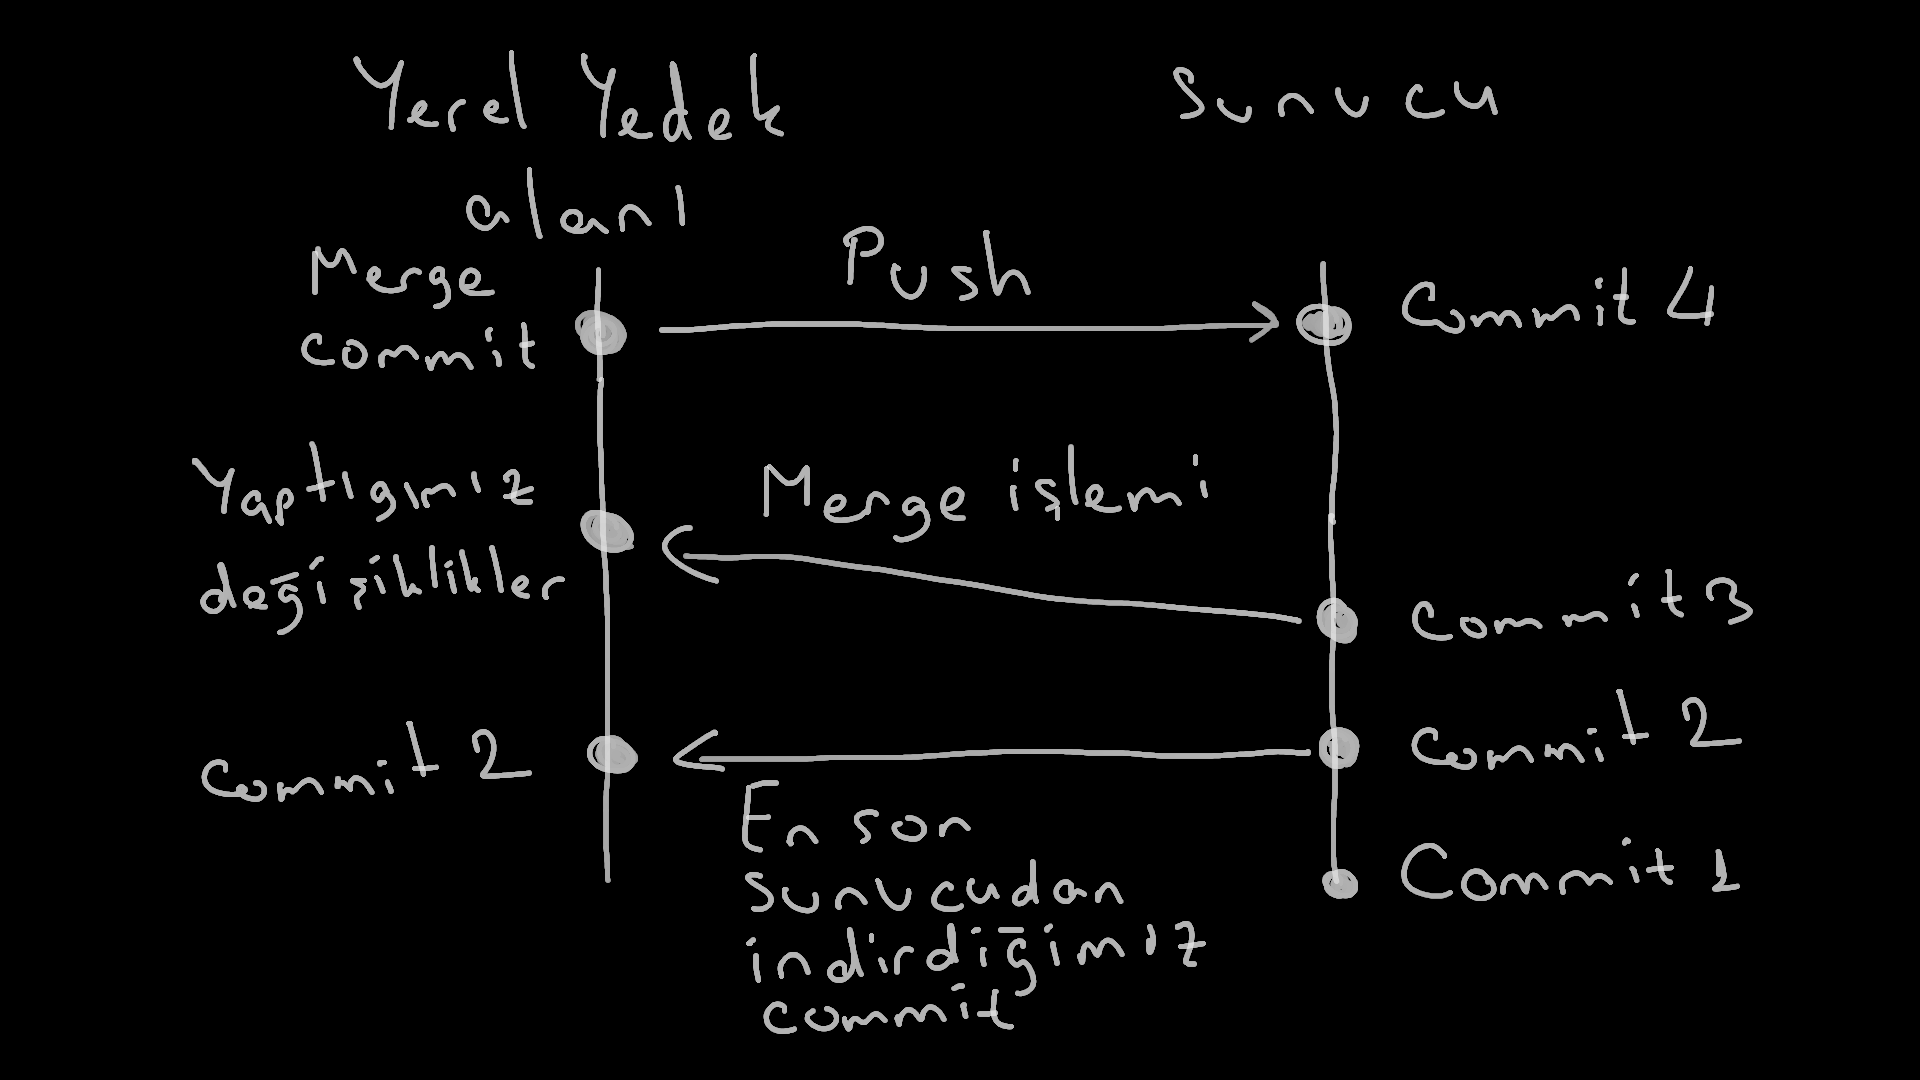 Yerel Yedek
alanı
Sunucu
Merge
commit
Push
Commit 4
Yaptıgımız
değişiklikler
Merge işlemi
Commit 3
Commit 2
Commit 2
En son
sunucudan
indirdiğimiz
commit
Commit 1